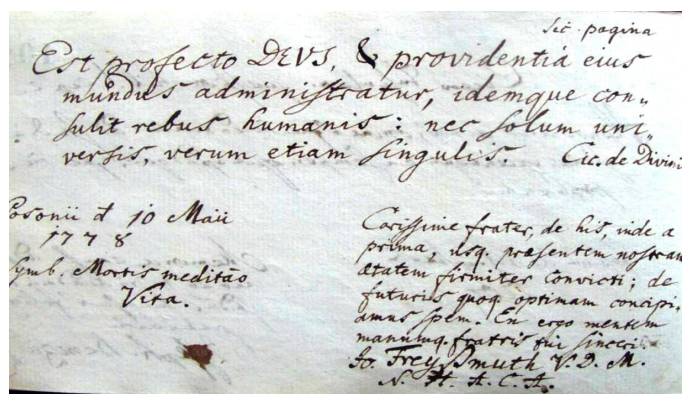 sit pagina
Est profecto DEVS, & providentiâ eius
mundus administratur, idemque con„
sulit rebus humanis: nec solum uni„
versis, verum etiam singulis. Cic. de Divini
Posonii d 10 Maii
1778
Symb. Mortis meditão
Vita.
Carissime frater, de his, inde a
prima, usq. præsentem nostram
ætatem firmiter convicti; de
futuris quoq. optimam concipi„
amus spem. En ergo mentem
manumq. fratris tui sinceri
Io. Frey Smuth V. D. M.
N. H. A. C. A.